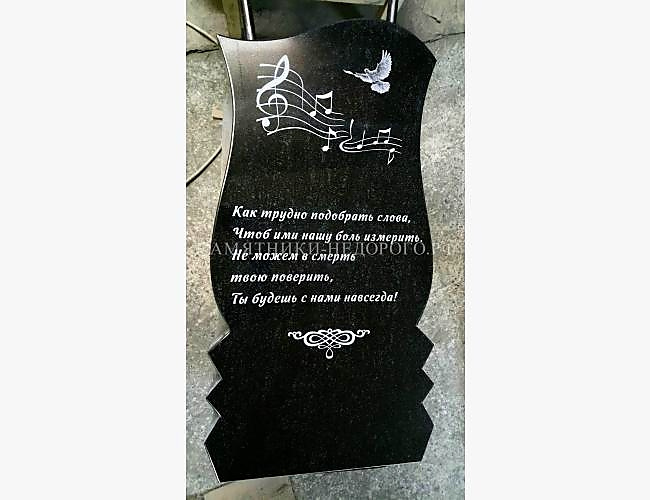 Как трудно подобрать слова,
Чтоб ими нашу боль измерить,
ПАМЯТНИКИ-НЕДОРОГО.РФ
Не можем в смерть
твою поверить,
Ты будешь с нами навсегда!